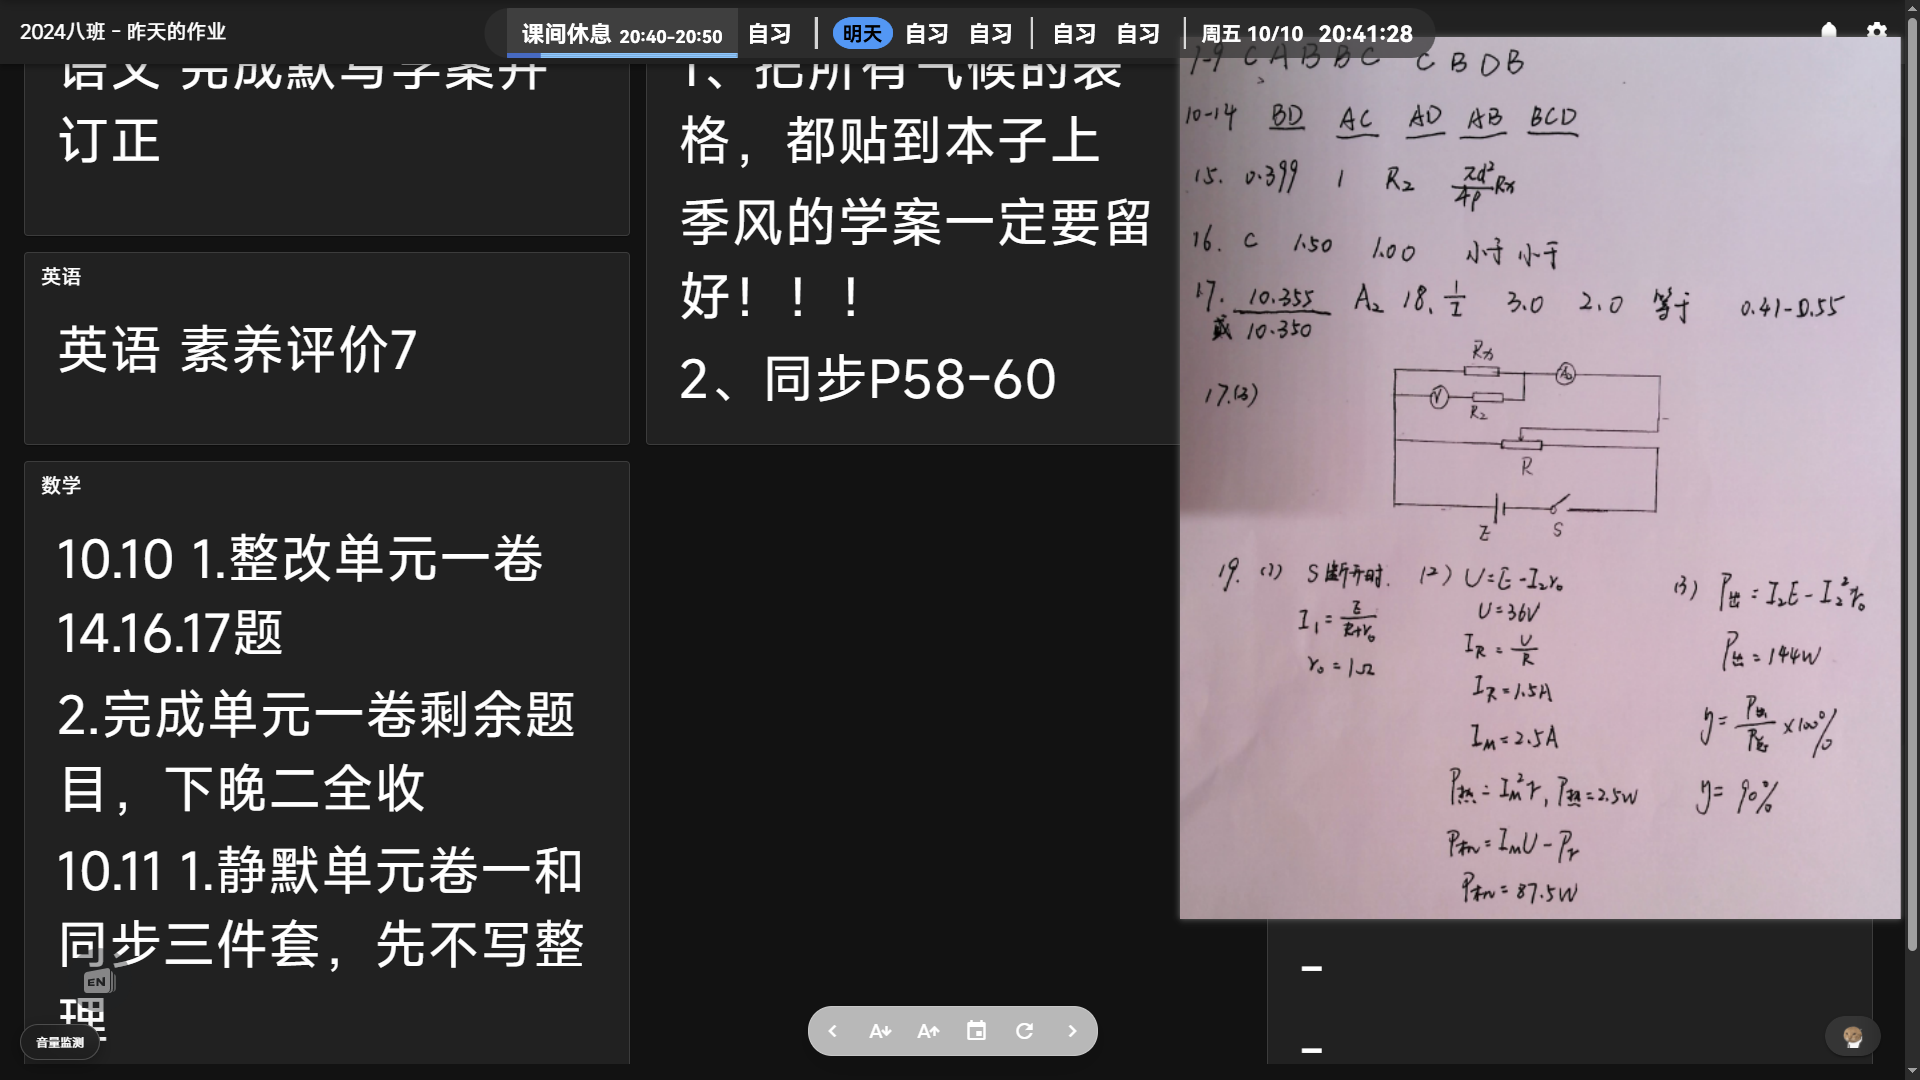 2024八班 - 昨天的作业
课间休息 20:40-20:50 自习 | 明天 自习 自习 | 自习 自习 | 周五 10/10 20:41:28
语文 完成默写学案并
订正
英语
英语 素养评价7
数学
10.10 1.整改单元一卷
14.16.17题
2.完成单元一卷剩余题
目，下晚二全收
10.11 1.静默单元卷一和
同步三件套，先不写整
理
EN
音量监测
1、把所有气候的表
格，都贴到本子上
季风的学案一定要留
好！！！
2、同步P58-60
1-9 C A B B C C B D B
10-14 BD AC AD AB BCD
15. 0.399 1 R₂ πd²/4ρ Rx
16. C 1.50 1.00 小于 小于
17. 10.355 A₂ 18. 1/I 3.0 2.0 等于 0.41-0.55
或 10.350
17.(3)
Rx
A₀
V
R₂
R
E S
19. (1) S断开时.
I₁ = E/(R+r₀)
r₀ = 1Ω
(2) U=E-I₂r₀
U=36V
I_R = U/R
I_R = 1.5A
I_M = 2.5A
P热 = I_M²r, P热=2.5W
P机 = I_M U - P_r
P机 = 87.5W
(3) P出 = I₂E - I₂²r₀
P出 = 144W
η = P出/P总 ×100%
η = 90%
–
–
A
A